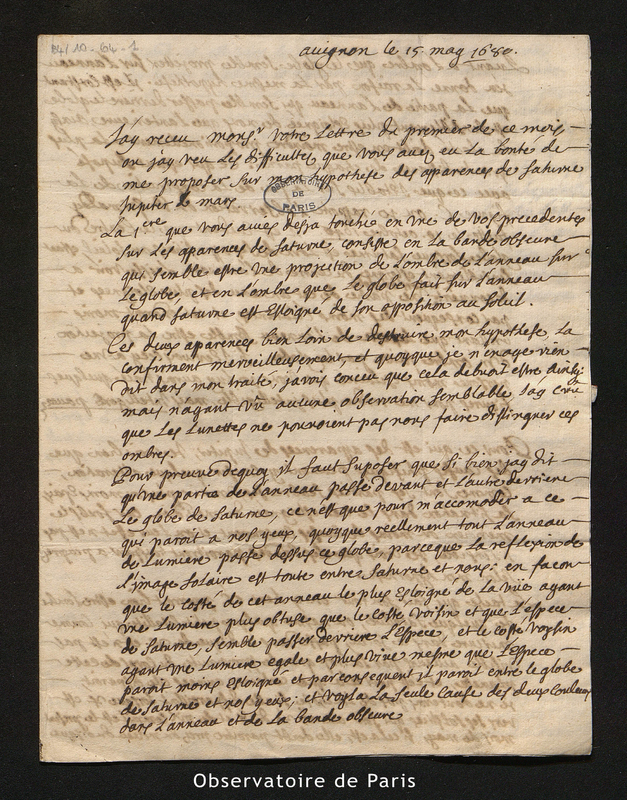 B4/10-64-1
avignon le 15 may 1680.
J'ay receu monsr votre Lettre du premier de ce mois
ou jay veu Les difficultes que vous avez eu La bonté de
me proposer sur mon hypothese des apparences de saturne
jupiter & mars.
OBSERVATOIRE
DE
PARIS
La 1ere que vous avies desja touchée en une de vos precedentes
sur Les aparences de saturne, consiste en La bande obscure
qui semble estre une projection de L'ombre de L'anneau sur
Le globe, et en L'ombre que Le globe fait sur L'anneau
quand saturne est Esloigné de son opposition au soleil.
Ces deux apparences bien Loin de destruire mon hypothese La
confirment merveilleusement, et quoyque je n'en aye rien
dit dans mon traité, javois conceu que cela devoit estre ainsy;
mais n'ayant vû aucune observation semblable, Jay cru
que Les Lunettes ne pouvoient pas nous faire distinguer ces
ombres.
Pour preuve dequoy il faut suposer que si bien jay dit
qu'une partie de L'anneau passe devant et L'autre derriere
Le globe de saturne, ce n'est que pour m'accomoder a ce
qui paroit a nos yeux, quoyque reellement tout L'anneau
de Lumiere passe dessus ce globe, parceque La reflexion de
L'image solaire est toute entre saturne et nous: en facon
que le costé de cet anneau le plus Esloigné de La vüe ayant
une Lumiere plus obtuse que le costé voisin et que L'espece
de saturne, semble passer derriere L'espece, et le costé voysin
ayant une Lumiere egale et plus vive mesme que L'espece
paroit moins Esloigné et par consequent il paroit entre le globe
de saturne et nos yeux; et voyla La seule cause des deux couleurs
dans L'anneau et de La bande obscure
Observatoire de Paris